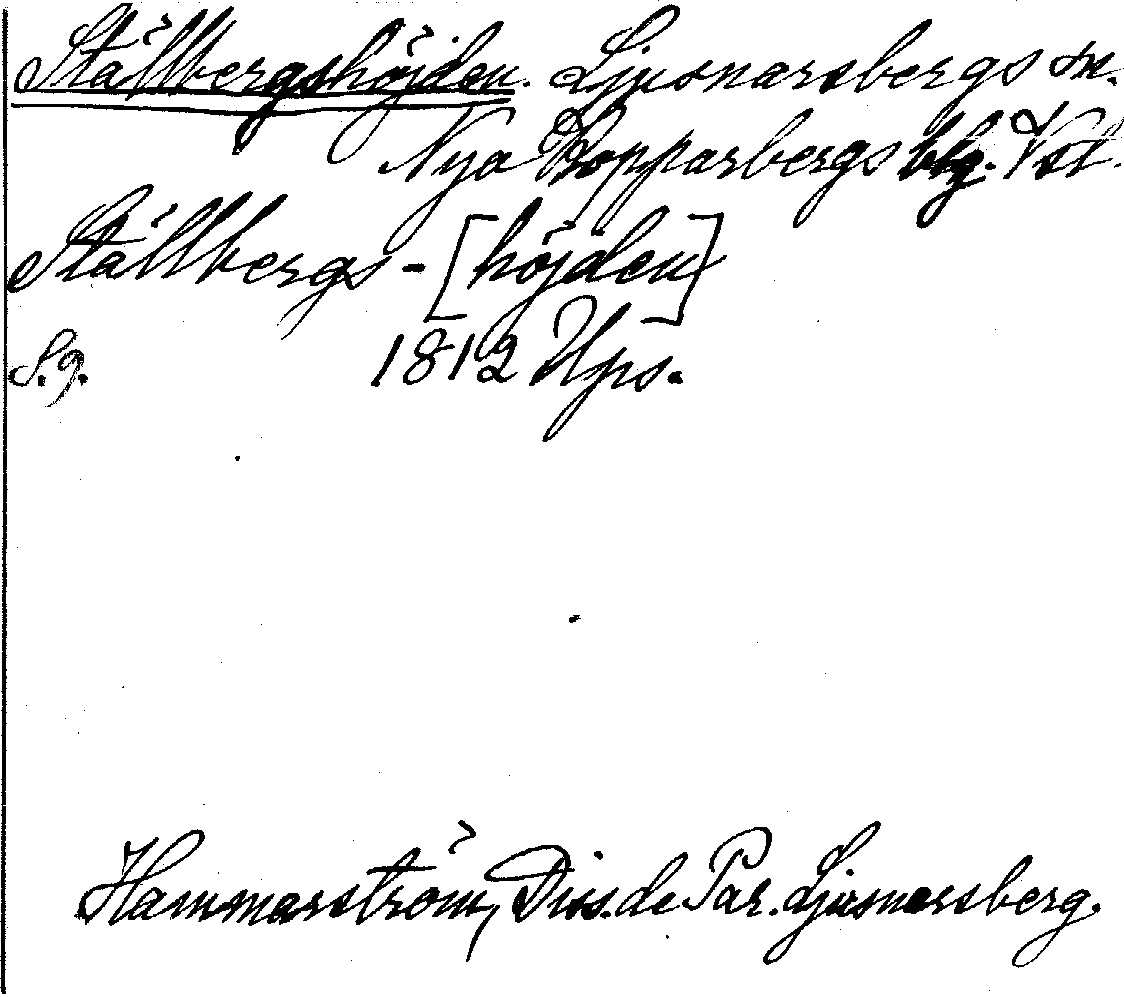 Ställbergshöjden. Ljusnarsbergs sn.
Nya Kopparbergs blg. Vstl.
Ställbergs-[höjden]
S.9. 1812 Ups.
Hammarström, Diss. de Par. Ljusnarsberg.